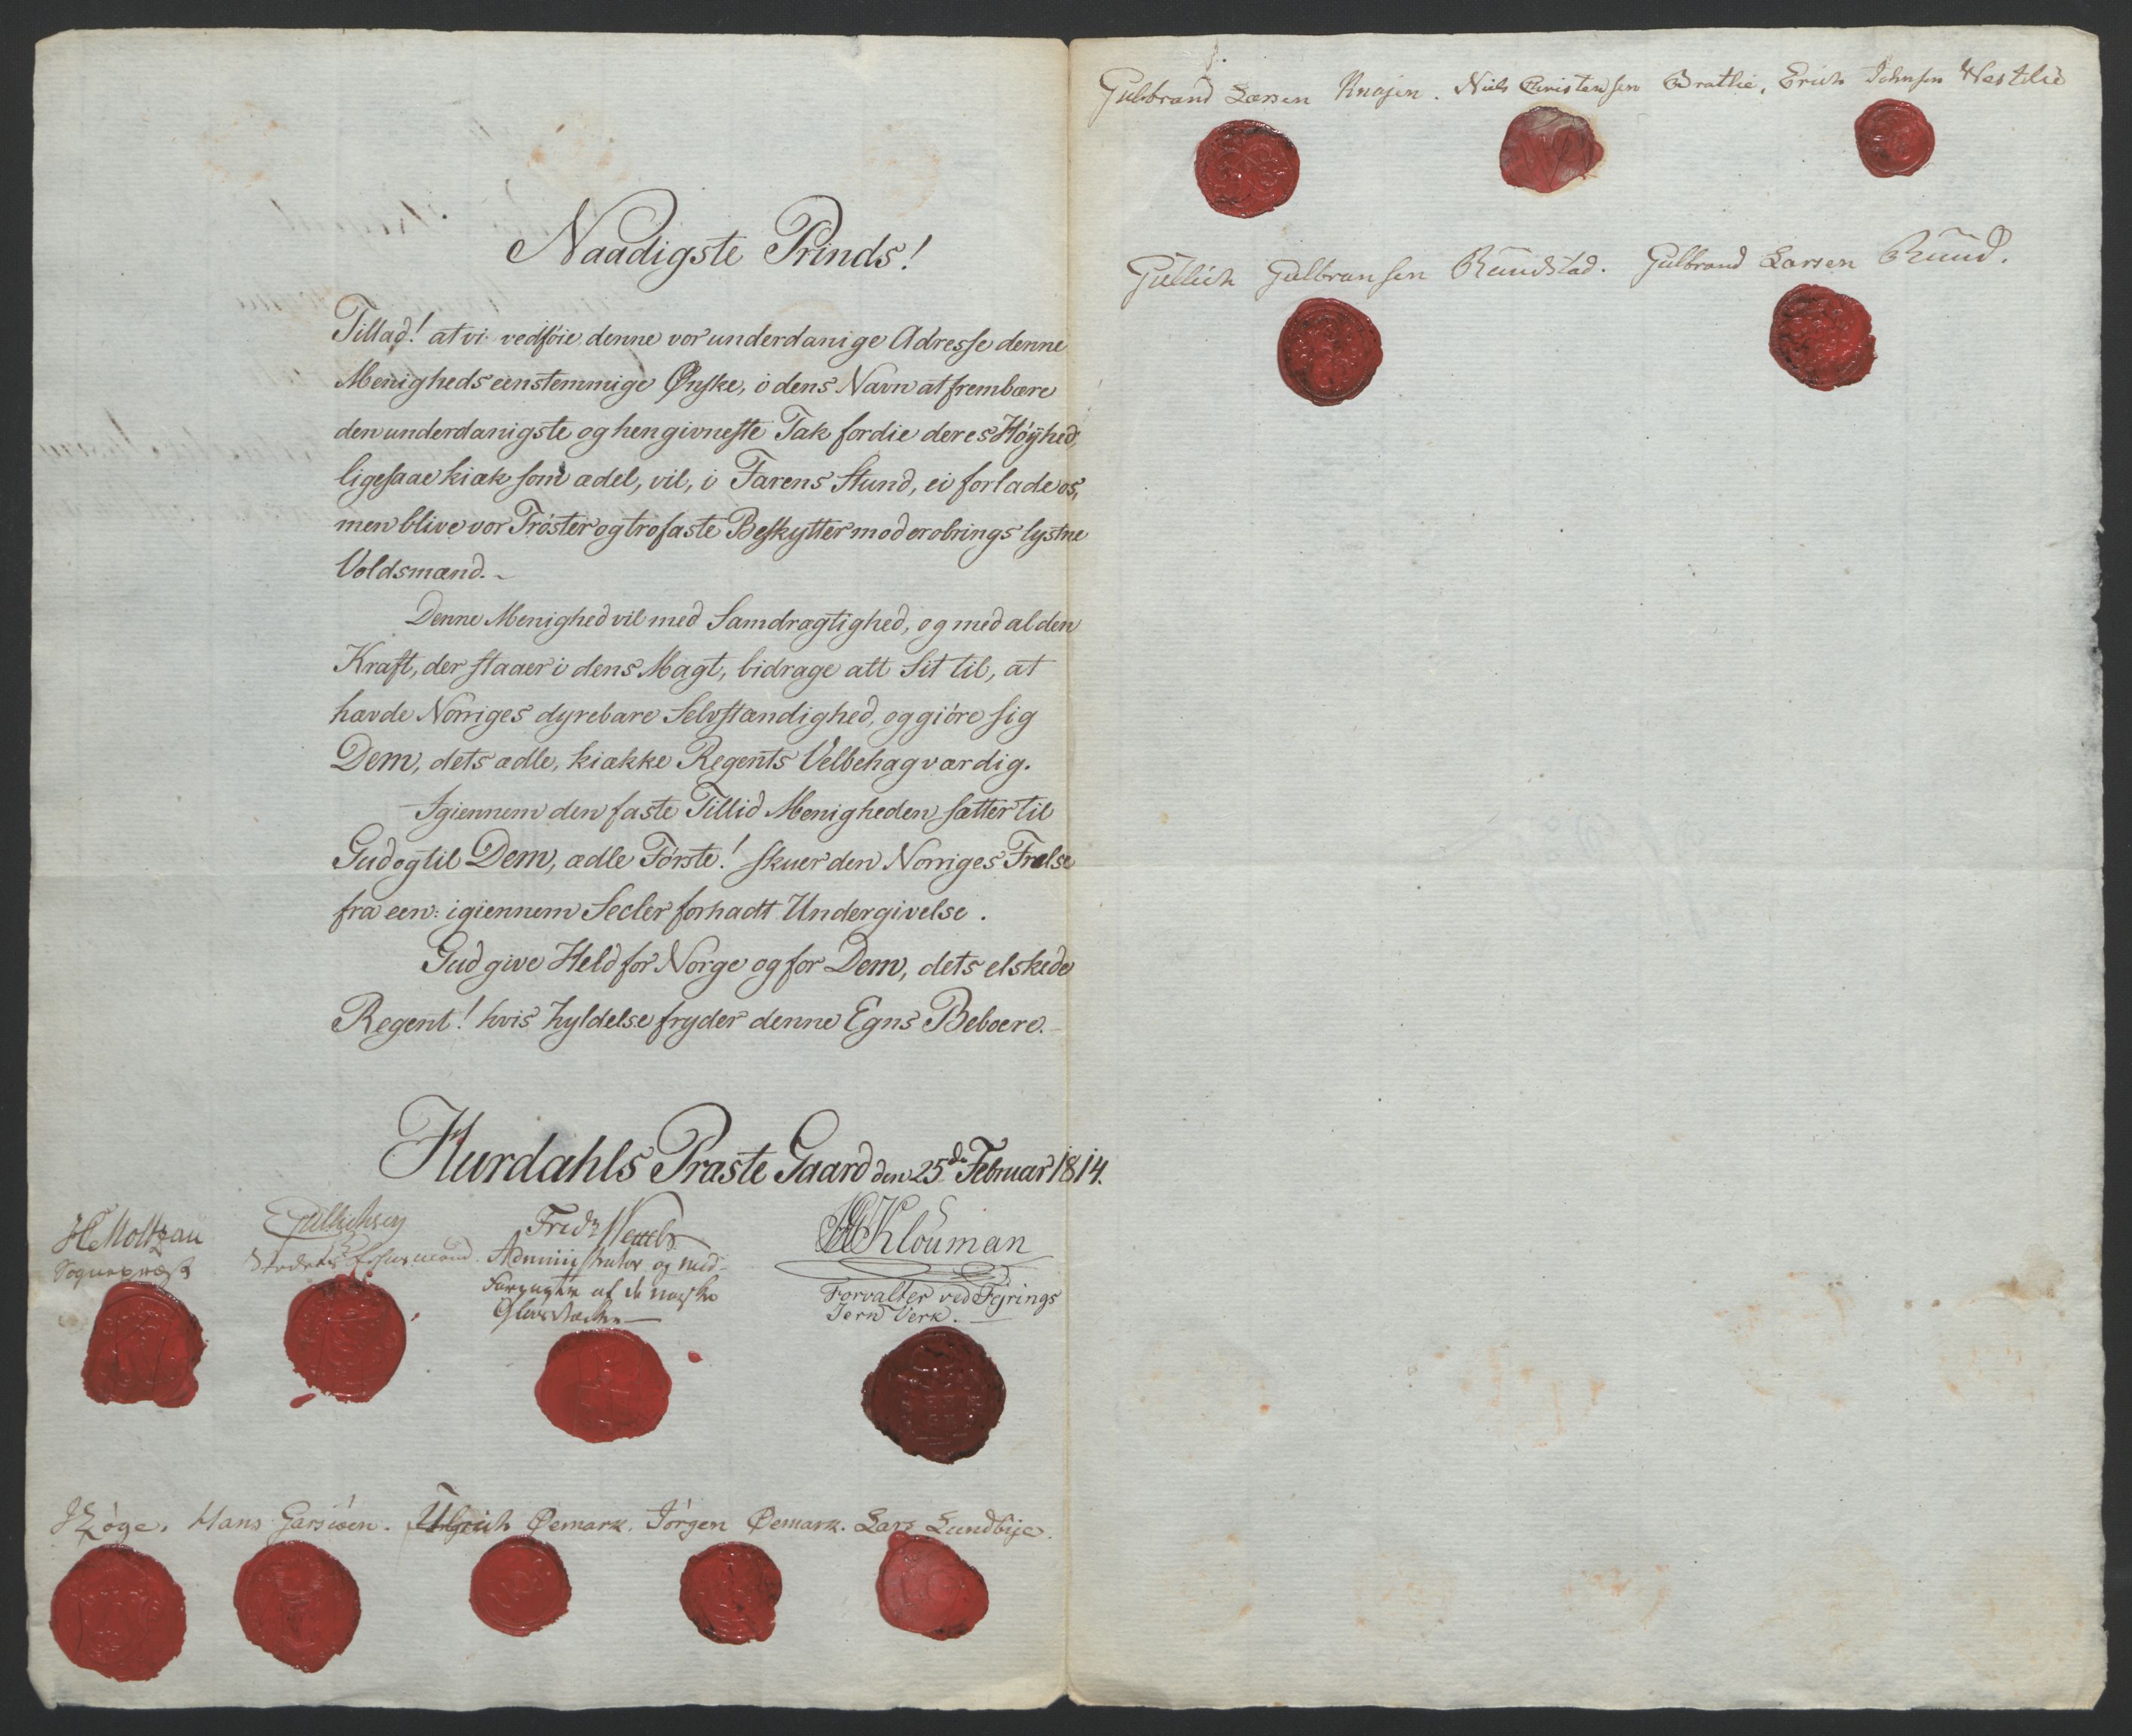 Naadigste Prinds!
Tillad! at vi vedføie denne vor underdanige Adresse denne
Menigheds eenstemmige Ønske, i dens Navn at frembære
den underdanigste og hengivneste Tak fordie deres Höÿhed,
ligesaae kiæk som ædel, vil, i Farens Stund, ei forlade os,
men blive vor Trøster og trofaste Beskytter mod erobrings lystne
Voldsmænd.
Denne Menighed vil med Samdrægtighed, og med al den
Kraft, der staaer i dens Magt, bidrage alt Sit til, at
hævde Norriges dyrebare Selvstændighed, og giöre sig
Dem, dets ædle, kiække Regents Velbehag værdig.
Igiennem den faste Tillid Menigheden sætter til
Gud og til Dem, ædle Förste! skuer den Norriges Frelse
fra een: igiennem Secler forhadt Undergivelse.
Gud give Held for Norge og for Dem, dets elskede
Regent! hvis hyldelse fryder denne Egns Beboere.
Hurdahls Præste Gaard den 25de Februar 1814.
H Moltzau
Sognepræst
E Gullichsen
Stedets Lehnsmand
Fridr Wexels
Administrator og med-
Forpagter af de norske
Glasværker
Klouman
Forvalter ved Fejrings
Jern Verk.
Høge. Hans Garsiøen. Ulrich Øemark. Jörgen Øemark. Lars Lundbÿe.
Gulbrand Larsen Knajen. Niels Christensen Bratlie. Erich Johnsen Westlie
Gullich Gulbransen Rundstad. Gulbrand Larsen Ruud.